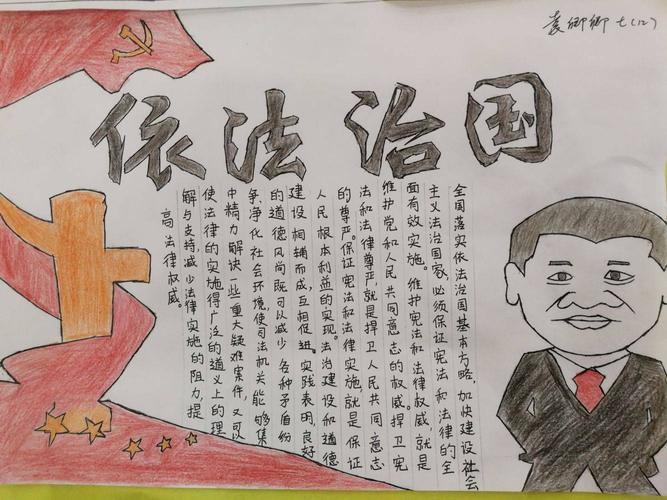 袁卿卿 七(12)
依法治国
全国落实依法治国基本方略,加快建设社会
主义法治国家,必须保证宪法和法律的全
面有效实施。维护宪法和法律权威,就是
维护党和人民共同意志的权威。捍卫宪
法和法律尊严,就是捍卫人民共同意志
的尊严。保证宪法和法律实施,就是保证
人民根本利益的实现。法治建设和道德
建设相辅而成,互相促进。实践表明,良好
的道德风尚既可以减少各种矛盾纷
争,净化社会环境,使司法机关能够集
中精力解决一些重大疑难案件,又可以
使法律的实施得广泛的道义上的理
解与支持,减少法律实施的阻力,提
高法律权威。